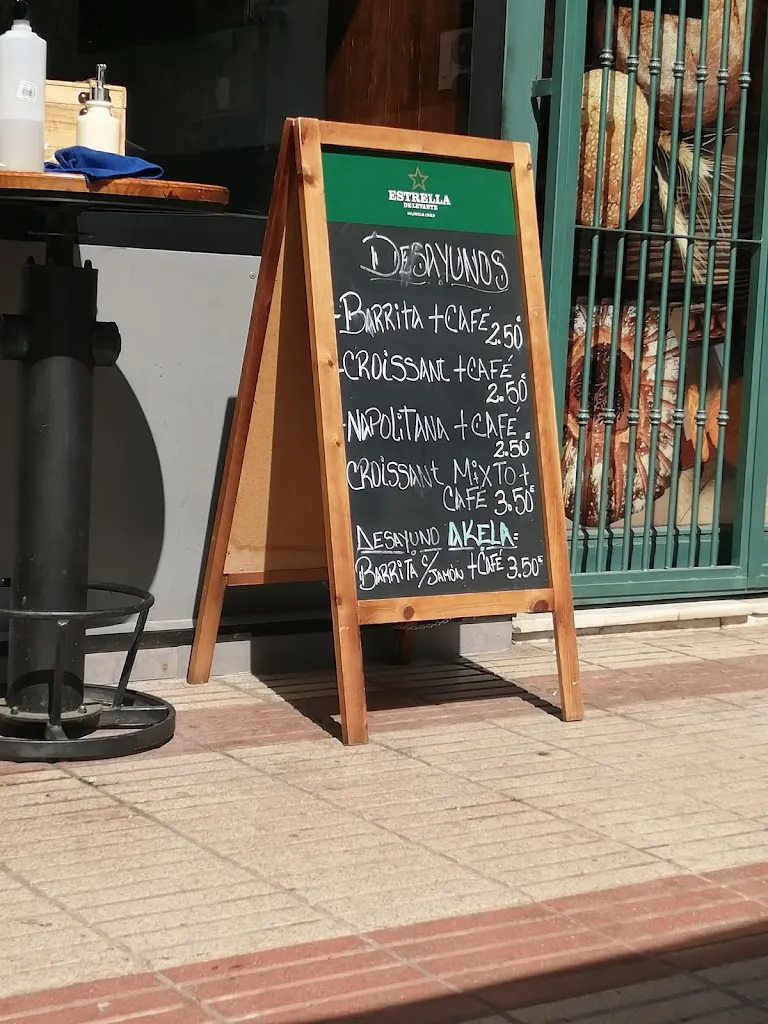 ESTRELLA
DE LEVANTE
MURCIA 1963
DESAYUNOS
-BARRITA + CAFÉ
2.50€
-CROISSANT + CAFÉ
2.50€
-NAPOLITANA + CAFÉ
2.50€
CROISSANT MIXTO +
CAFÉ 3.50€
DESAYUNO AKELA=
BARRITA C/JAMÓN + CAFÉ 3.50€